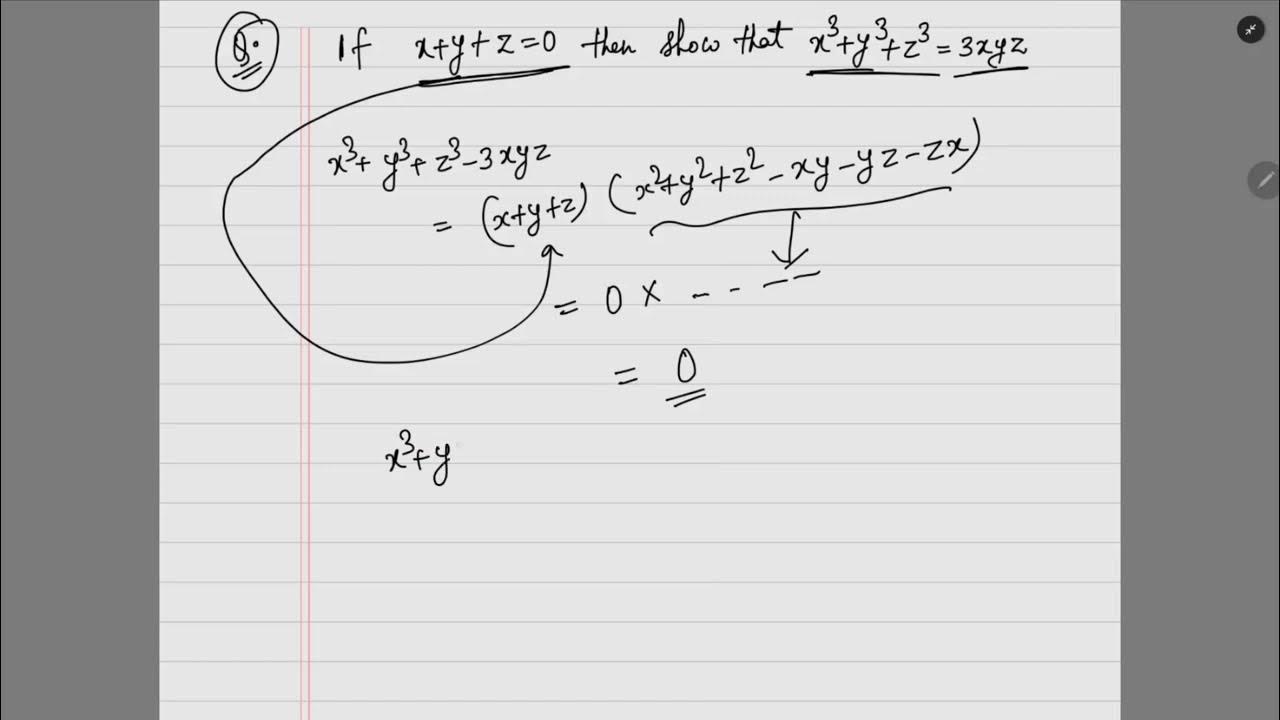 Q. If x+y+z=0 then show that x³+y³+z³=3xyz
x³+y³+z³-3xyz
= (x+y+z) (x²+y²+z²-xy-yz-zx)
= 0 × - - - -
= 0
x³+y